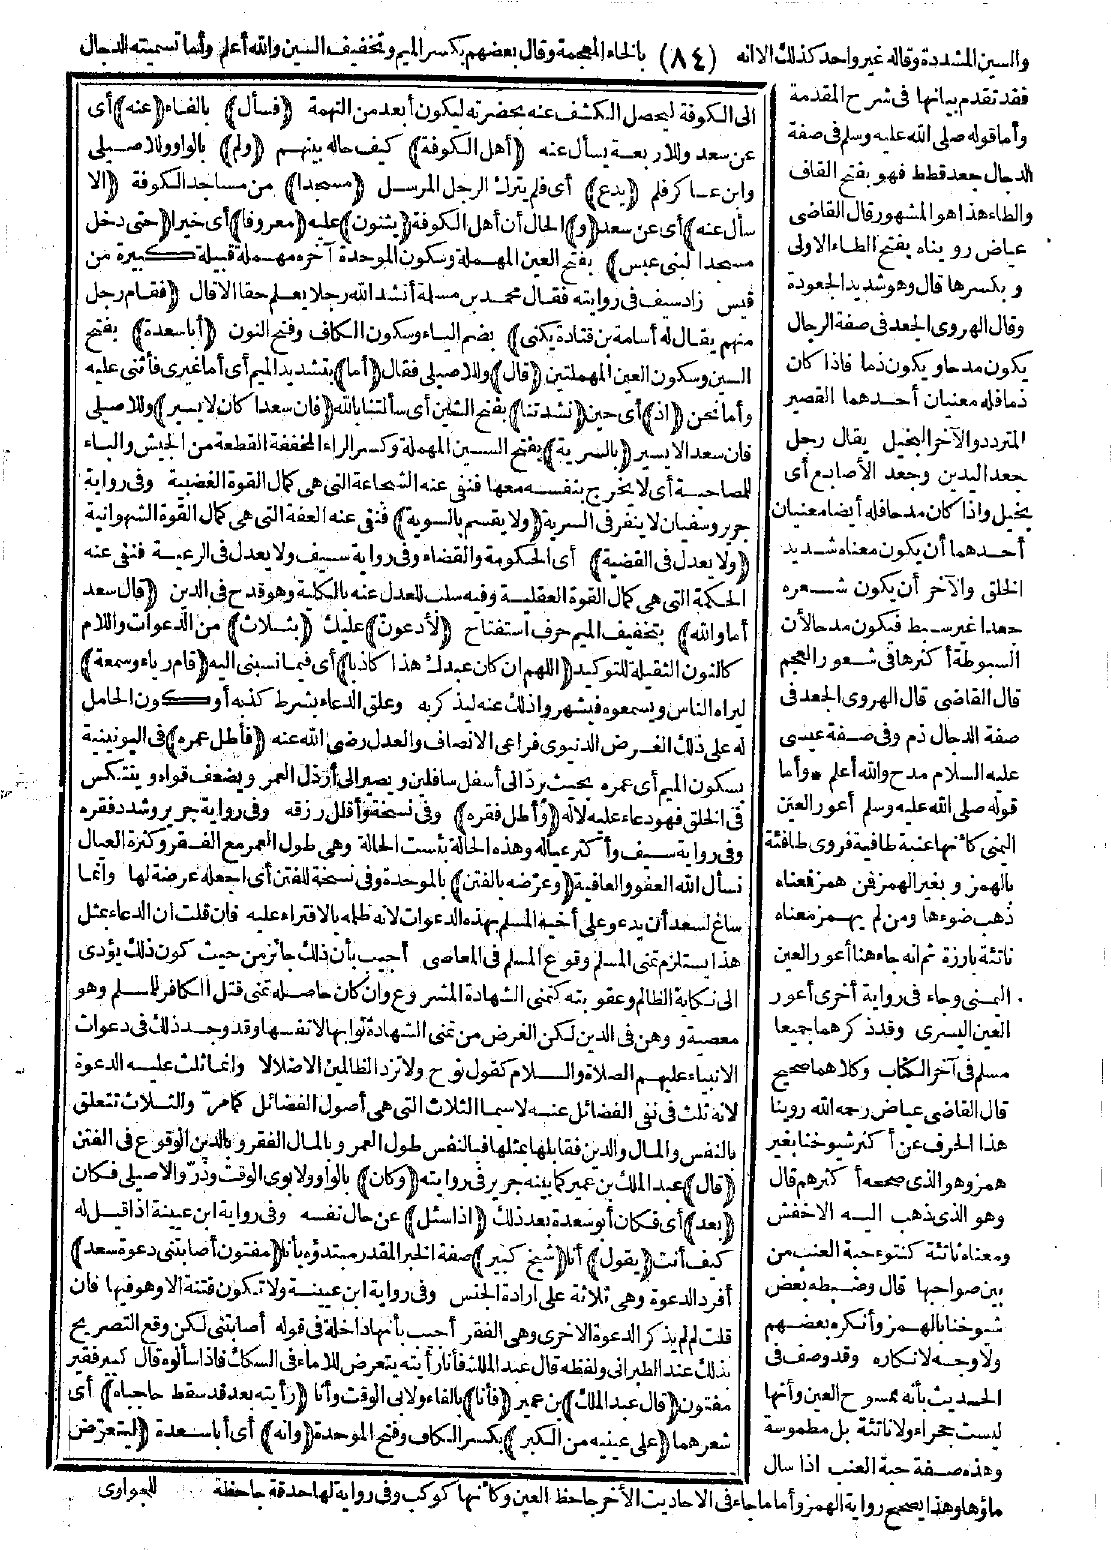 والسين المشددة وقاله غير واحد كذلك الا انه (٨٤) بالخاء المعجمة وقال بعضهم بكسر الميم وتخفيف السين والله أعلم وأما تسميته الدجال
فقد تقدم بيانها فى شرح المقدمة
وأما قوله صلى الله عليه وسلم فى صفة
الدجال جعد قطط فهو بفتح القاف
والطاء هذا هو المشهور قال القاضى
عياض رويناه بفتح الطاء الاولى
وبكسرها قال وهو شديد الجعودة
وقال الهروى الجعد فى صفة الرجال
يكون مدحا ويكون ذما فاذا كان
ذما فله معنيان أحدهما القصير
المتردد والآخر البخيل يقال رجل
جعد اليدين وجعد الأصابع أى
بخيل واذا كان مدحا فله أيضا معنيان
أحدهما أن يكون معناه شديد
الخلق والآخر أن يكون شعره
جعدا غير سبط فيكون مدحا لأن
السبوطة أكثرها فى شعور العجم
قال القاضى قال الهروى الجعد فى
صفة الدجال ذم وفى صفة عيسى
عليه السلام مدح والله أعلم * وأما
قوله صلى الله عليه وسلم أعور العين
اليمنى كأنها عنبة طافية فروى طافئة
بالهمز وبغير الهمز فمن همز فعناه
ذهب ضوءها ومن لم يهمز معناه
ناتئة بارزة ثم انه جاء هنا أعور العين
اليمنى وجاء فى رواية أخرى أعور
العين اليسرى وقد ذكرهما جميعا
مسلم فى آخر الكتاب وكلاهما صحيح
قال القاضى عياض رحمه الله روينا
هذا الحرف عن أكثر شيوخنا بغير
همز وهو الذى صححه أكثرهم قال
وهو الذى ذهب اليه الاخفش
ومعناه ناتئة كنتوء حبة العنب من
بين صواحبها قال وضبطه بعض
شيوخنا بالهمز وأنكره بعضهم
ولا وجه لانكاره وقد وصف فى
الحديث بأنه ممسوح العين وأنها
ليست جحراء ولا ناتئة بل مطموسة
وهذه صفة حبة العنب اذا سال
ماؤها وهذا يصحح رواية الهمز وأما ما جاء فى الاحاديث الأخر جاحظ العين وكأنها كوكب وفى رواية لها حدقة جاحظة
الى الكوفة ليحصل الكشف عنه بحضرته ليكون أبعد من التهمة (فسأل) بالفاء (عنه) أى
عن سعد وللاربعة يسأل عنه (أهل الكوفة) كيف حاله بينهم (ولم) بالواو وللاصيلى
وابن عساكر فلم (يدع) أى فلم يترك الرجل المرسل (مسجدا) من مساجد الكوفة (الا
سأل عنه) أى عن سعد (و) الحال أن أهل الكوفة (يثنون) عليه (معروفا) أى خيرا (حتى دخل
مسجدا لبنى عبس) بفتح العين المهملة وسكون الموحدة آخره مهملة قبيلة كبيرة من
قيس زاد سيف فى روايته فقال محمد بن مسلمة أنشد الله رجلا يعلم حقا الا قال (فقام رجل
منهم يقال له أسامة بن قتادة يكنى) بضم الياء وسكون الكاف وفتح النون (أبا سعدة) بفتح
السين وسكون العين المهملتين (قال) وللاصيلى فقال (أما) بتشديد الميم أى أما غيرى فأثنى عليه
وأما نحن (اذ) أى حين (نشدتنا) بفتح الشين أى سألتنا بالله (فان سعدا كان لا يسير) وللاصيلى
فان سعد الا يسير (بالسرية) بفتح السين المهملة وكسر الراء المخففة القطعة من الجيش والباء
للمصاحبة أى لا يخرج بنفسه معها فنفى عنه الشجاعة التى هى كمال القوة الغضبية وفى رواية
جرير وسفيان لا ينفر فى السرية (ولا يقسم بالسوية) فنفى عنه العفة التى هى كمال القوة الشهوانية
(ولا يعدل فى القضية) أى الحكومة والقضاء وفى رواية سيف ولا يعدل فى الرعية فنفى عنه
الحكمة التى هى كمال القوة العقلية وفيه سلب للعدل عنه بالكلية وهو قدح فى الدين (قال سعد
أما والله) بتخفيف الميم حرف استفتاح (لأدعون) عليك (بثلاث) من الدعوات واللام
كالنون الثقيلة للتوكيد (اللهم ان كان عبدك هذا كاذبا) أى فيما نسبنى اليه (قام رياء وسمعة)
ليراه الناس ويسمعوه فيشهروا ذلك عنه ليذكر به وعلق الدعاء بشرط كذبه أو كون الحامل
له على ذلك الغرض الدنيوى فراعى الانصاف والعدل رضى الله عنه (فأطل عمره) فى اليونينية
بسكون الميم أى عمره بحيث يرد الى أسفل سافلين ويصير الى أرذل العمر ويضعف قواه وينتكس
فى الخلق فهو دعاء عليه لا له (وأطل فقره) وفى نسخة وأقلل رزقه وفى رواية جرير وشدد فقره
وفى رواية سيف وأكثر عياله وهذه الحالة بئست الحالة وهى طول العمر مع الفقر وكثرة العيال
نسأل الله العفو والعافية (وعرّضه بالفتن) بالموحدة وفى نسخة للفتن أى اجعله عرضة لها وانما
ساغ لسعد أن يدعو على أخيه المسلم بهذه الدعوات لانه ظلمه بالافتراء عليه فان قلت ان الدعاء بمثل
هذا يستلزم تمنى المسلم وقوع المسلم فى المعاصى أجيب بأن ذلك جائز من حيث كون ذلك يؤدى
الى نكاية الظالم وعقوبته كتمنى الشهادة المشروع وان كان حاصله تمنى قتل الكافر للمسلم وهو
معصية ووهن فى الدين لكن الغرض من تمنى الشهادة ثوابها لا نفسها وقد وجد ذلك فى دعوات
الانبياء عليهم الصلاة والسلام كقول نوح ولا تزد الظالمين الا ضلالا وانما ثلث عليه الدعوة
لانه ثلث فى نفى الفضائل عنه لا سيما الثلاث التى هى أصول الفضائل كما مرّ والثلاث تتعلق
بالنفس والمال والدين فقابلها بمثلها فبالنفس طول العمر وبالمال الفقر وبالدين الوقوع فى الفتن
(قال) عبد الملك بن عمير كما بينه جرير فى روايته (وكان) بالواو ولابوى الوقت وذرّ والاصيلى فكان
(بعد) أى فكان أبو سعدة بعد ذلك (اذا سئل) عن حال نفسه وفى رواية ابن عيينة اذا قيل له
كيف أنت (يقول) أنا (شيخ كبير) صفة الخبر المقدر مبتدؤه بأنا (مفتون أصابتنى دعوة سعد)
أفرد الدعوة وهى ثلاثة على ارادة الجنس وفى رواية ابن عيينة ولا تكون فتنة الا وهو فيها فان
قلت لم لم يذكر الدعوة الاخرى وهى الفقر أجيب بأنها داخلة فى قوله أصابتنى لكن وقع التصريح
بذلك عند الطبرانى ولفظه قال عبد الملك فأنا رأيته يتعرض للاماء فى السكك فاذا سألوه قال كبير فقير
مفتون (قال عبد الملك) بن عمير (فأنا) بالفاء ولابى الوقت وأنا (رأيته بعد قد سقط حاجباه) أى
شعرهما (على عينيه من الكبر) بكسر الكاف وفتح الموحدة (وانه) أى أبا سعدة (ليتعرّض
للجوارى